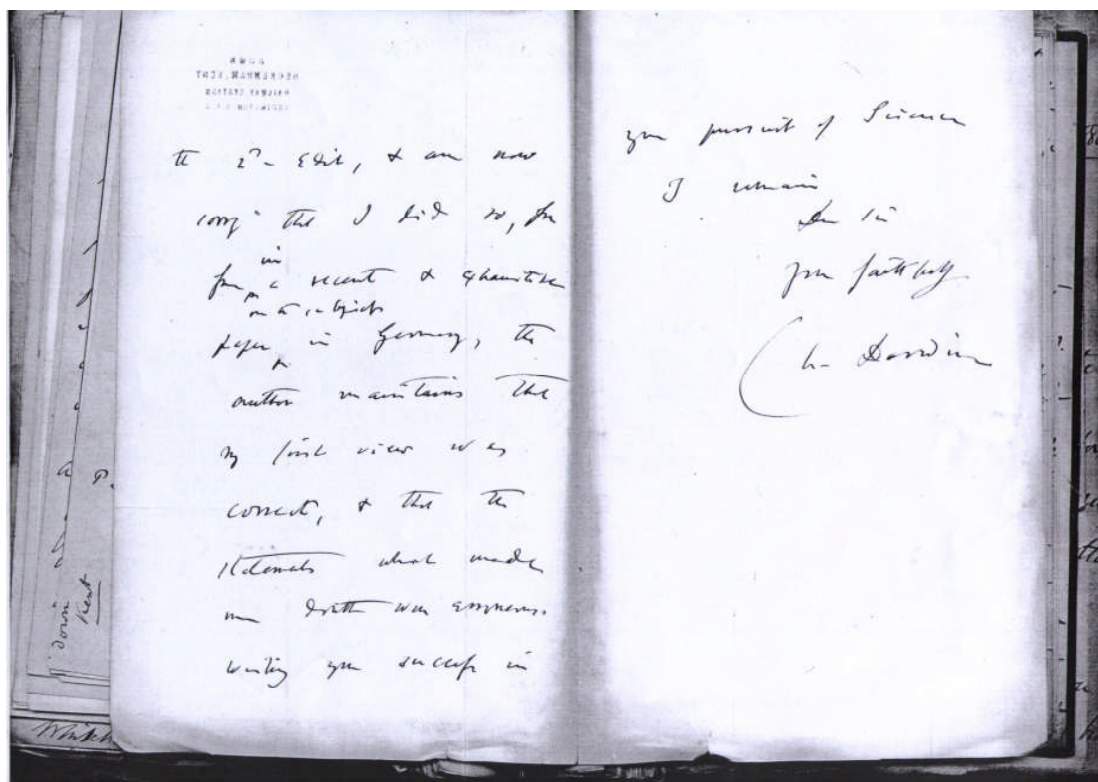 the 2nd Edit, & am now
sorry that I did so, for
in
from a recent & exhaustive
on the subject
paper in Germany, the
author maintains that
my first view was
correct, & that the
statements which made
me doubt was erroneous.
Wishing you success in
your pursuit of Science
I remain
Dear Sir
Yours faithfully
Ch. Darwin
Down
Kent